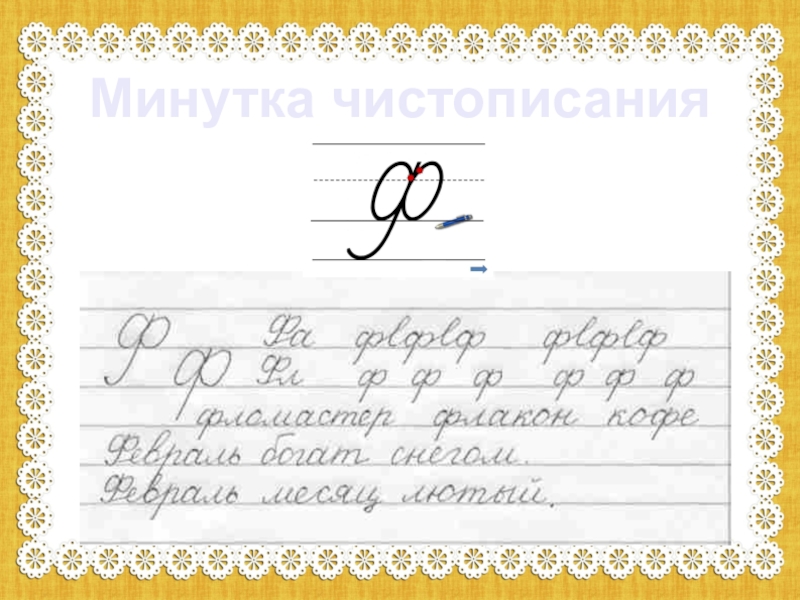 Минутка чистописания
ф
Ф Фа фсфсф фсфсф
ф Фл ф ф ф ф ф ф
фломастер флакон кофе
Февраль богат снегом.
Февраль месяц лютый.